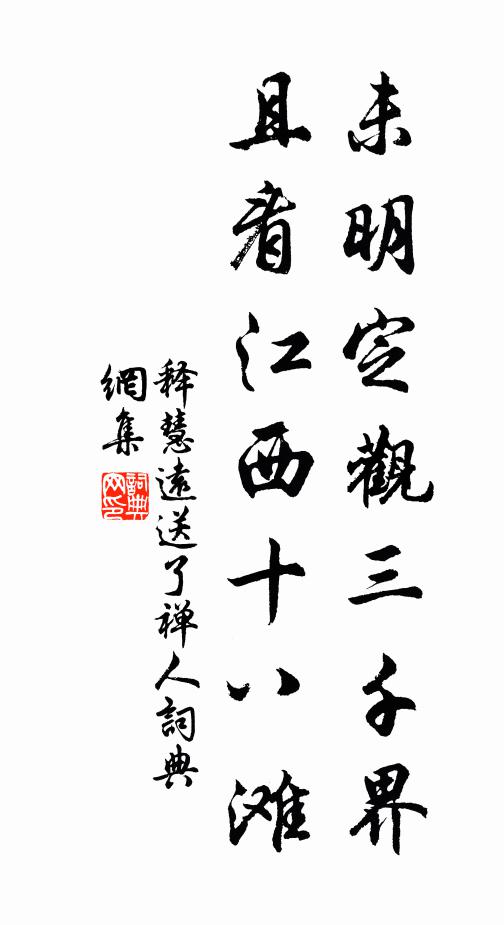 未明空觀三千界
且看江西十八滩
释慧遠送了禅人詞典
網集
詞典
网印